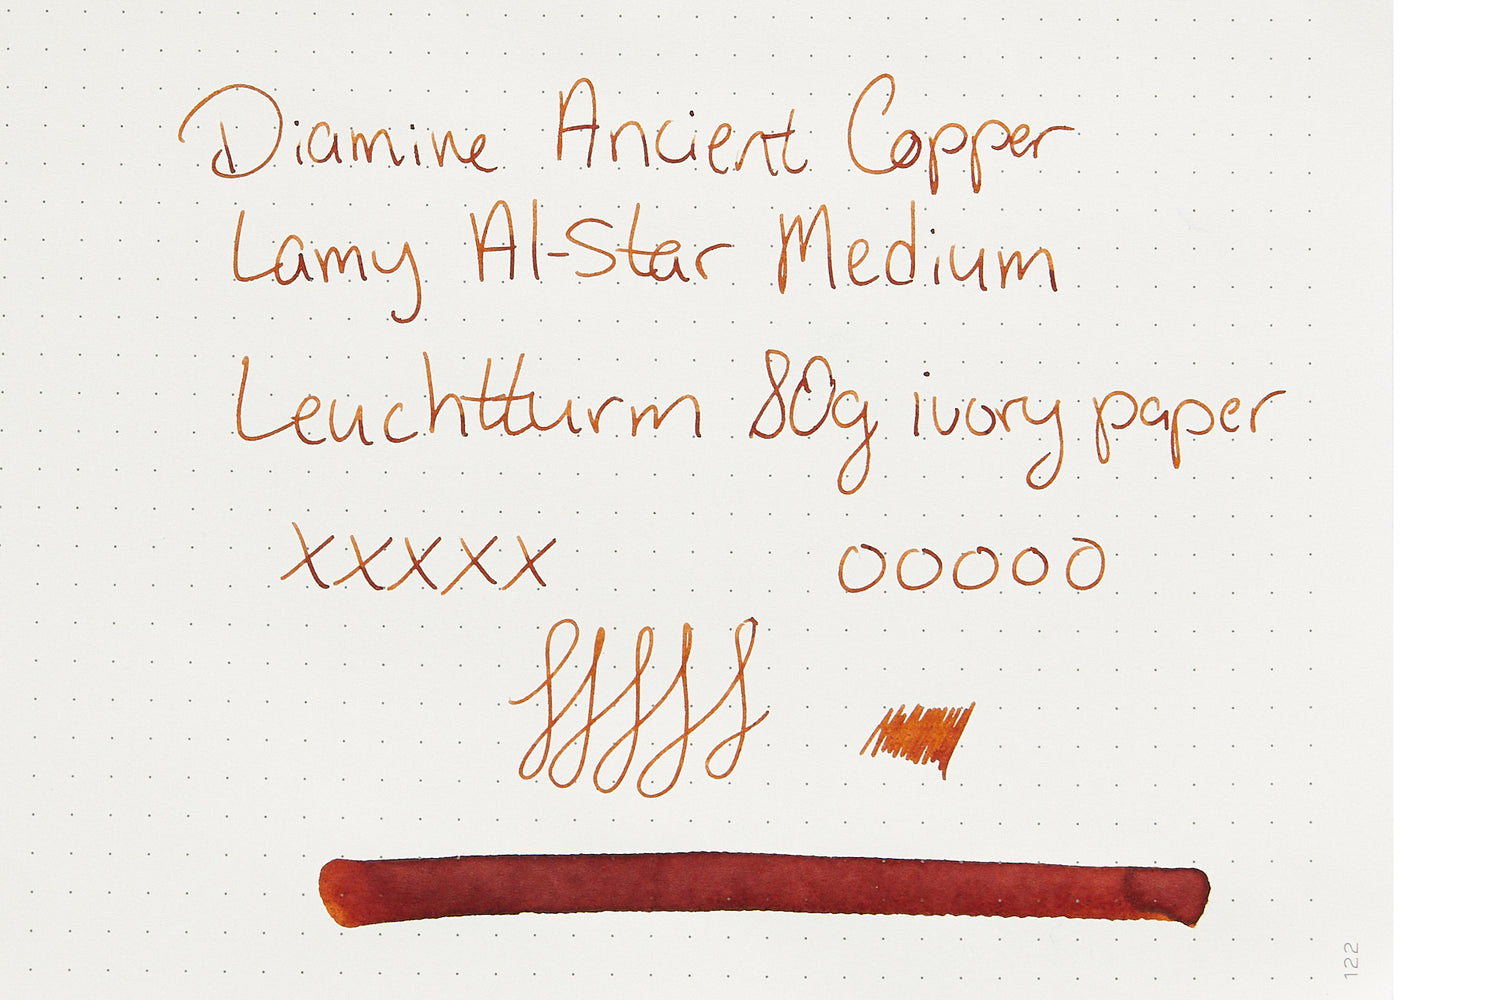 Diamine Ancient Copper
Lamy Al-Star Medium
Leuchtturm 80g ivory paper
xxxxx ooooo
122